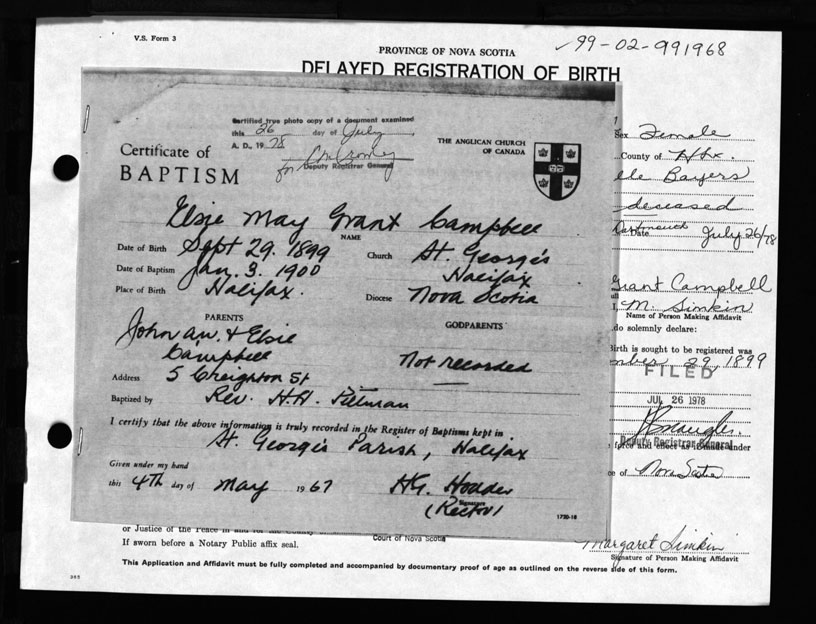 V.S. Form 3
PROVINCE OF NOVA SCOTIA
99-02-991968
DELAYED REGISTRATION OF BIRTH
Certified true photo copy of a document examined
this 26 day of July
A. D., 1978
for
Deputy Registrar General
THE ANGLICAN CHURCH
OF CANADA
Certificate of
BAPTISM
Elsie May Grant Campbell
NAME
Date of Birth Sept 29. 1899
Church St. George's
Halifax
Date of Baptism Jan. 3. 1900
Place of Birth Halifax.
Diocese Nova Scotia
PARENTS
John & Elsie
Campbell
GODPARENTS
Not recorded
Address 5 Creighton St
Baptized by Rev. H.H. Pittman
I certify that the above information is truly recorded in the Register of Baptisms kept in
St. George's Parish, Halifax
Given under my hand
this 4th day of May 1967
H.G. Hodder
Signature
(Rector)
1750-18
Sex Female
County of Hfx.
lle Bayers
deceased
Dartmouth Date July 26/78
Grant Campbell
I, M. Simkin
Name of Person Making Affidavit
do solemnly declare:
Birth is sought to be registered was
mber 29, 1899
FILED
JUL 26 1978
Deputy Registrar General
force and effect as if made under
ce of Nova Scotia
or Justice of the Peace in and for the County
Court of Nova Scotia
If sworn before a Notary Public affix seal.
Margaret Simkin
Signature of Person Making Affidavit
This Application and Affidavit must be fully completed and accompanied by documentary proof of age as outlined on the reverse side of this form.